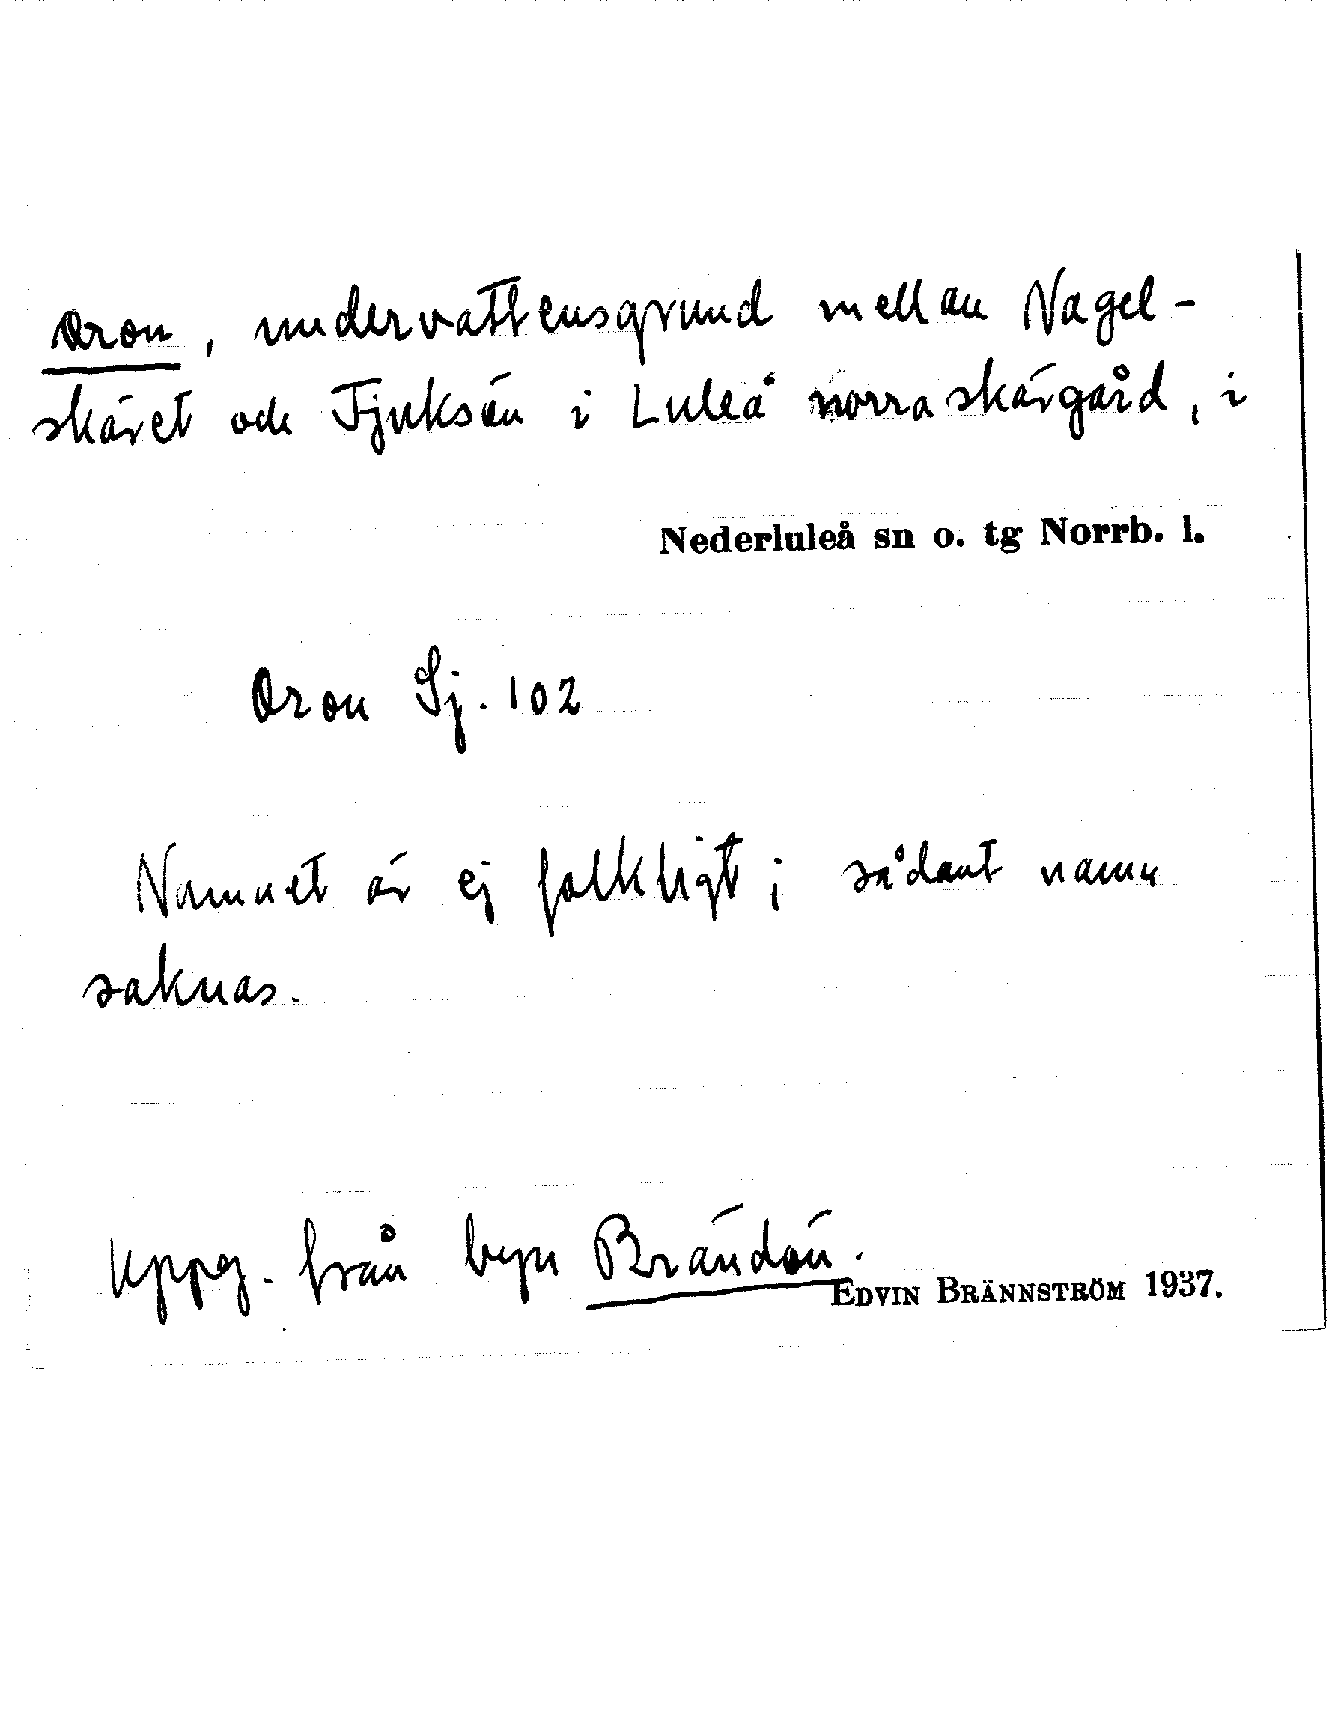 Oron, undervattensgrund mellan Nagel-
skäret och Tjuksön i Luleå norra skärgård, i
Nederluleå sn o. tg Norrb. l.
Oron Sj. 102
Namnet är ej folkligt; sådant namn
saknas.
Uppg. från byn Brändön.
EDVIN BRÄNNSTRÖM 1937.